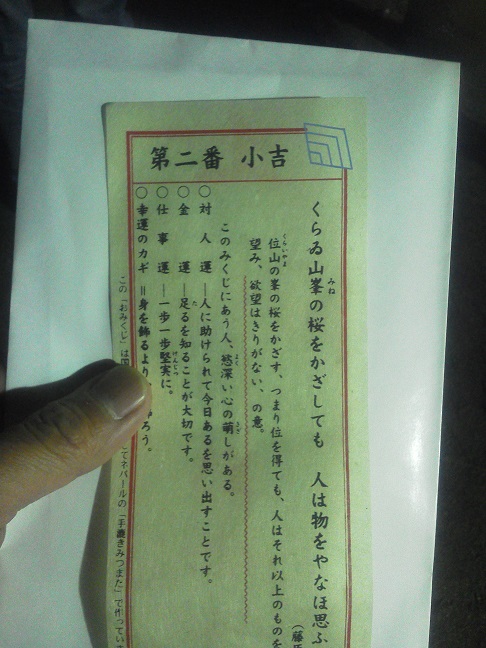 第二番 小吉
くらゐ山峯の桜をかざしても 人は物をやなほ思ふ
(藤原
位山の峯の桜をかざす、つまり位を得ても、人はそれ以上のものを
望み、欲望はきりがない、の意。
このみくじにあう人、慾深い心の萌しがある。
○対人運―人に助けられて今日あるを思い出すことです。
○金運―足るを知ることが大切です。
○仕事運―一歩一歩堅実に。
○幸運のカギ=身を飾るより ろう。
この「おみくじ」は国 てネパールの「手漉きみつまた」で作ってい